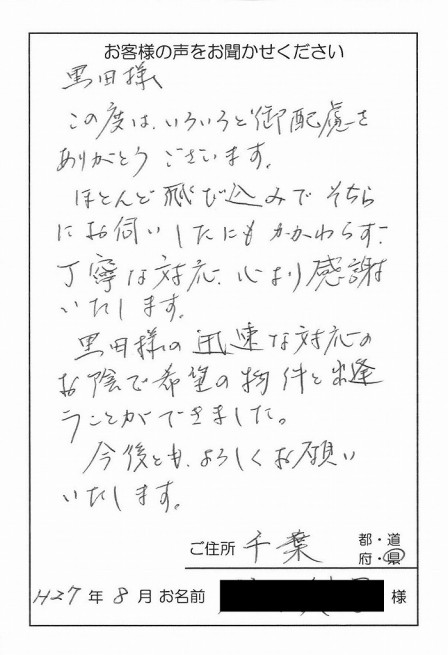 お客様の声をお聞かせください
黒田様
この度は、いろいろと御配慮を
ありがとうございます。
ほとんど飛び込みでそちら
にお伺いしたにもかかわらず、
丁寧な対応、心より感謝
いたします。
黒田様の迅速な対応の
お陰で希望の物件と出逢
うことができました。
今後とも、よろしくお願い
いたします。
ご住所 千葉 都・道
府・県
H27年8月 お名前 様